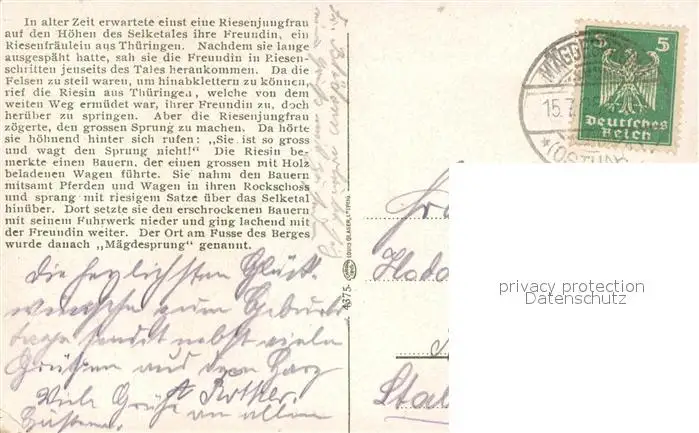 In alter Zeit erwartete einst eine Riesenjungfrau
auf den Höhen des Selketales ihre Freundin, ein
Riesenfräulein aus Thüringen. Nachdem sie lange
ausgespäht hatte, sah sie die Freundin in Riesen-
schritten jenseits des Tales herankommen. Da die
Felsen zu steil waren, um hinabklettern zu können,
rief die Riesin aus Thüringen, welche von dem
weiten Weg ermüdet war, ihrer Freundin zu, doch
herüber zu springen. Aber die Riesenjungfrau
zögerte, den grossen Sprung zu machen. Da hörte
sie höhnend hinter sich rufen: „Sie ist so gross
und wagt den Sprung nicht!" Die Riesin be-
merkte einen Bauern, der einen grossen mit Holz
beladenen Wagen führte. Sie nahm den Bauern
mitsamt Pferden und Wagen in ihren Rockschoss
und sprang mit riesigem Satze über das Selketal
hinüber. Dort setzte sie den erschrockenen Bauern
mit seinem Fuhrwerk nieder und ging lachend mit
der Freundin weiter. Der Ort am Fusse des Berges
wurde danach „Mägdesprung" genannt.
Die herzlichsten Glück-
wünsche zum Geburts
tage sendet nebst vielen
Grüßen aus dem Harz
Viele Grüße an allen
LOUIS GLASER, LEIPZIG
4375
5 5
Deutsches
Reich
15.7.
(OSTHARZ)
privacy protection
Datenschutz